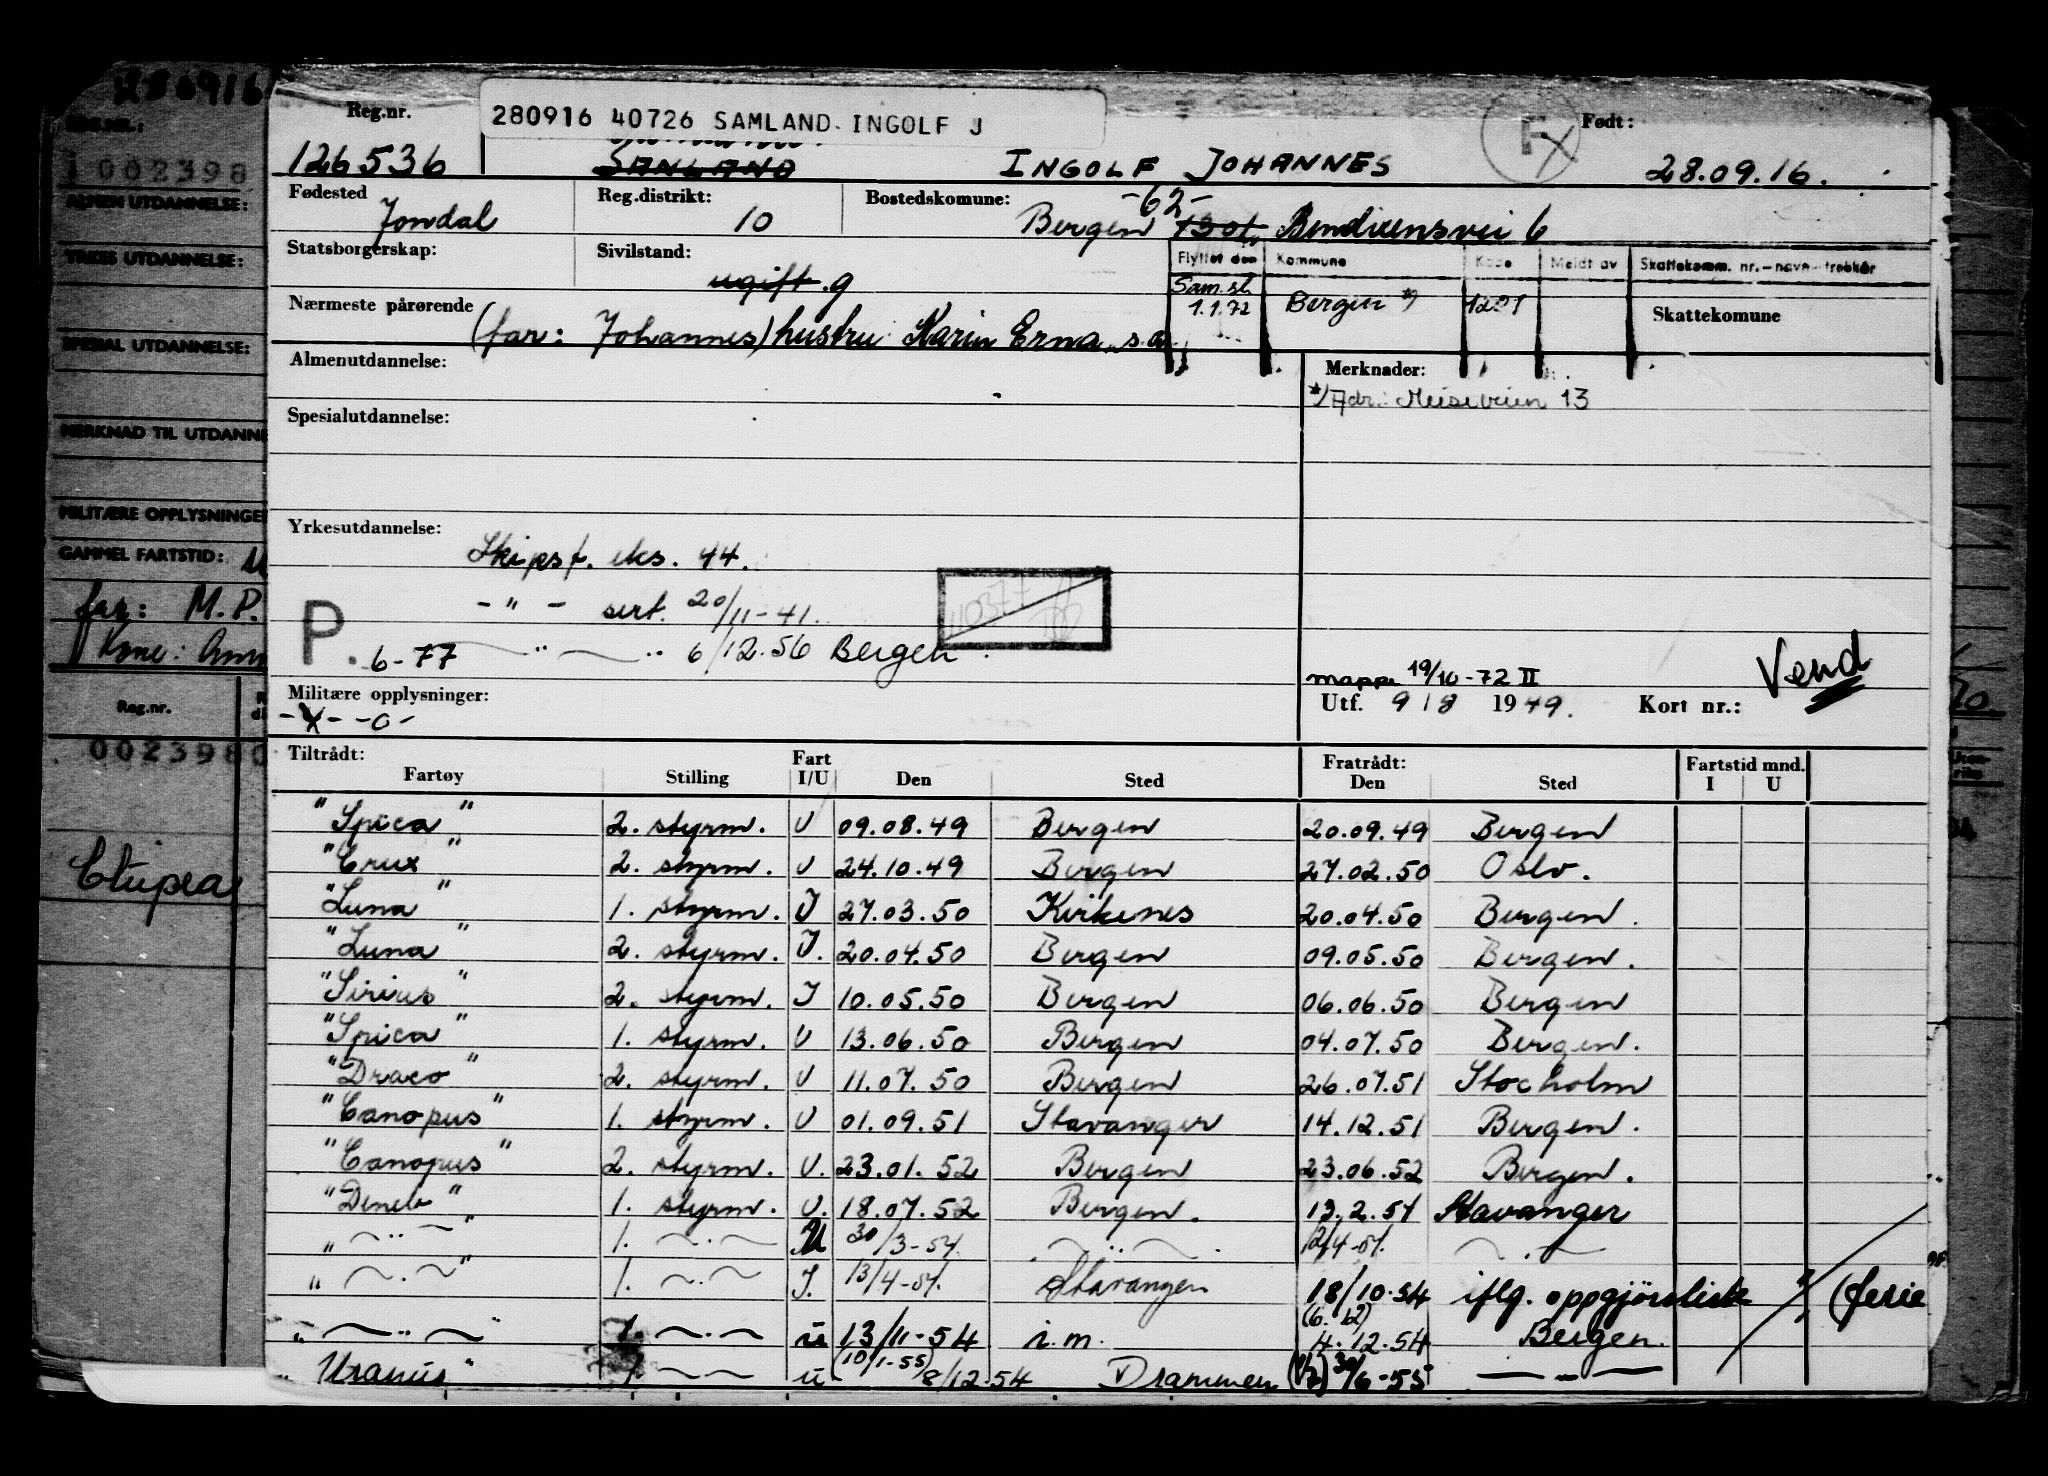 280916
Reg.nr.
280916 40726 SAMLAND INGOLF J
Født:
002398
126536 SANLAND INGOLF JOHANNES 28.09.16.
ALMEN UTDANNELSE:
Fødested Reg.distrikt: Bostedskomune: -62-
Jondal 10 Bergen Bendixensvei 6
YRKES UTDANNELSE:
Statsborgerskap: Sivilstand: Flyttet den Kommune Kode Meldt av Skattekomm. nr.-navn-trekkår
ugift. g Sam.st. 1.1.72 Bergen *) 1201 Skattekomune
Nærmeste pårørende
(far: Johannes) hustru Karin Erna, s.a.
SPESIAL UTDANNELSE:
Almenutdannelse: Merknader:
*) Adr.: Meiseveien 13
Spesialutdannelse:
MERKNAD TIL UTDANNE
MILITÆRE OPPLYSNINGER
Yrkesutdannelse:
Skipsf. eks. 44.
GAMMEL FARTSTID:
110377
far: M.P.
- " - sert. 20/11-41.
P. 6-77 — " — 6/12.56 Bergen.
Kone:
mappe 19/10-72 II Vend
Militære opplysninger: Utf. 9/8 1949. Kort nr.:
Reg.nr.
0023980
Tiltrådt: Fart Fratrådt: Fartstid mnd.
Fartøy Stilling I/U Den Sted Den Sted I U
"Spica" 2. styrm. U 09.08.49 Bergen 20.09.49 Bergen
"Crux" 2. styrm. U 24.10.49 Bergen 27.02.50 Oslo.
"Luna" 1. styrm. I 27.03.50 Kirkenes 20.04.50 Bergen.
"Luna" 2. styrm. I. 20.04.50 Bergen 09.05.50 Bergen.
"Sirius" 2. styrm. I 10.05.50 Bergen 06.06.50 Bergen
"Spica" 1. styrm. U 13.06.50 Bergen 04.07.50 Bergen.
"Draco" 2. styrm. U 11.07.50 Bergen 26.07.51 Stocholm
"Canopus" 1. styrm. U 01.09.51 Stavanger 14.12.51 Bergen.
"Canopus" 2. styrm. U. 23.01.52 Bergen 23.06.52 Bergen.
"Deneb" 1. styrm. U. 18.07.52 Bergen. 13.2.54 Stavanger
" — " — " 1. — " — U 30/3-54. — " — 12/4-54. — " —
" — " — " 1. — " — I. 13/4-54. Stavanger 18/10-54 iflg. oppgjörsliste (ferie
" — " — " 1. — " — u 13/11-54 i.m. (6.12) 4.12.54 Bergen.
"Uranus" 1. — — u (10/1-55) 8/12.54 Drammen 30/6-55 — " —